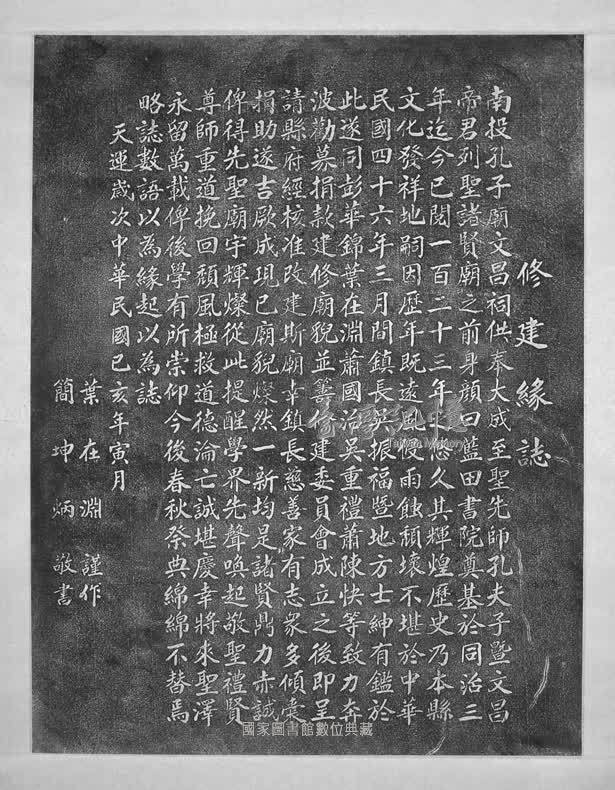 修建緣誌
南投孔子廟文昌祠供奉大成至聖先師孔夫子暨文昌
帝君列聖諸賢廟之前身顏曰藍田書院奠基於同治三
年迄今已閱一百二十三年 悠久其輝煌歷史乃本縣
文化發祥地嗣因歷年既遠風 雨蝕頹壞不堪於中華
民國四十六年三月間鎮長吳振福暨地方士紳有鑑於
此遂同彭華錦葉在淵蕭國治吳重禮蕭陳快等致力奔
波勸募捐款建修廟貌並籌修建委員會成立之後即呈
請縣府經核准改建斯廟幸鎮長慈善家有志眾多傾囊
捐助遂吉厥成現已廟貌燦然一新均是諸賢鼎力赤誠
俾得先聖廟宇輝燦從此提醒學界先聲喚起敬聖禮賢
尊師重道挽回頹風極救道德淪亡誠堪慶幸將來聖澤
永留萬載俾後學有所崇仰今後春秋祭典綿綿不替焉
略誌數語以為緣起以為誌
天運歲次中華民國己亥年寅月
葉在淵謹作
簡坤炳敬書
國家圖書館數位典藏
Taiwan Memory